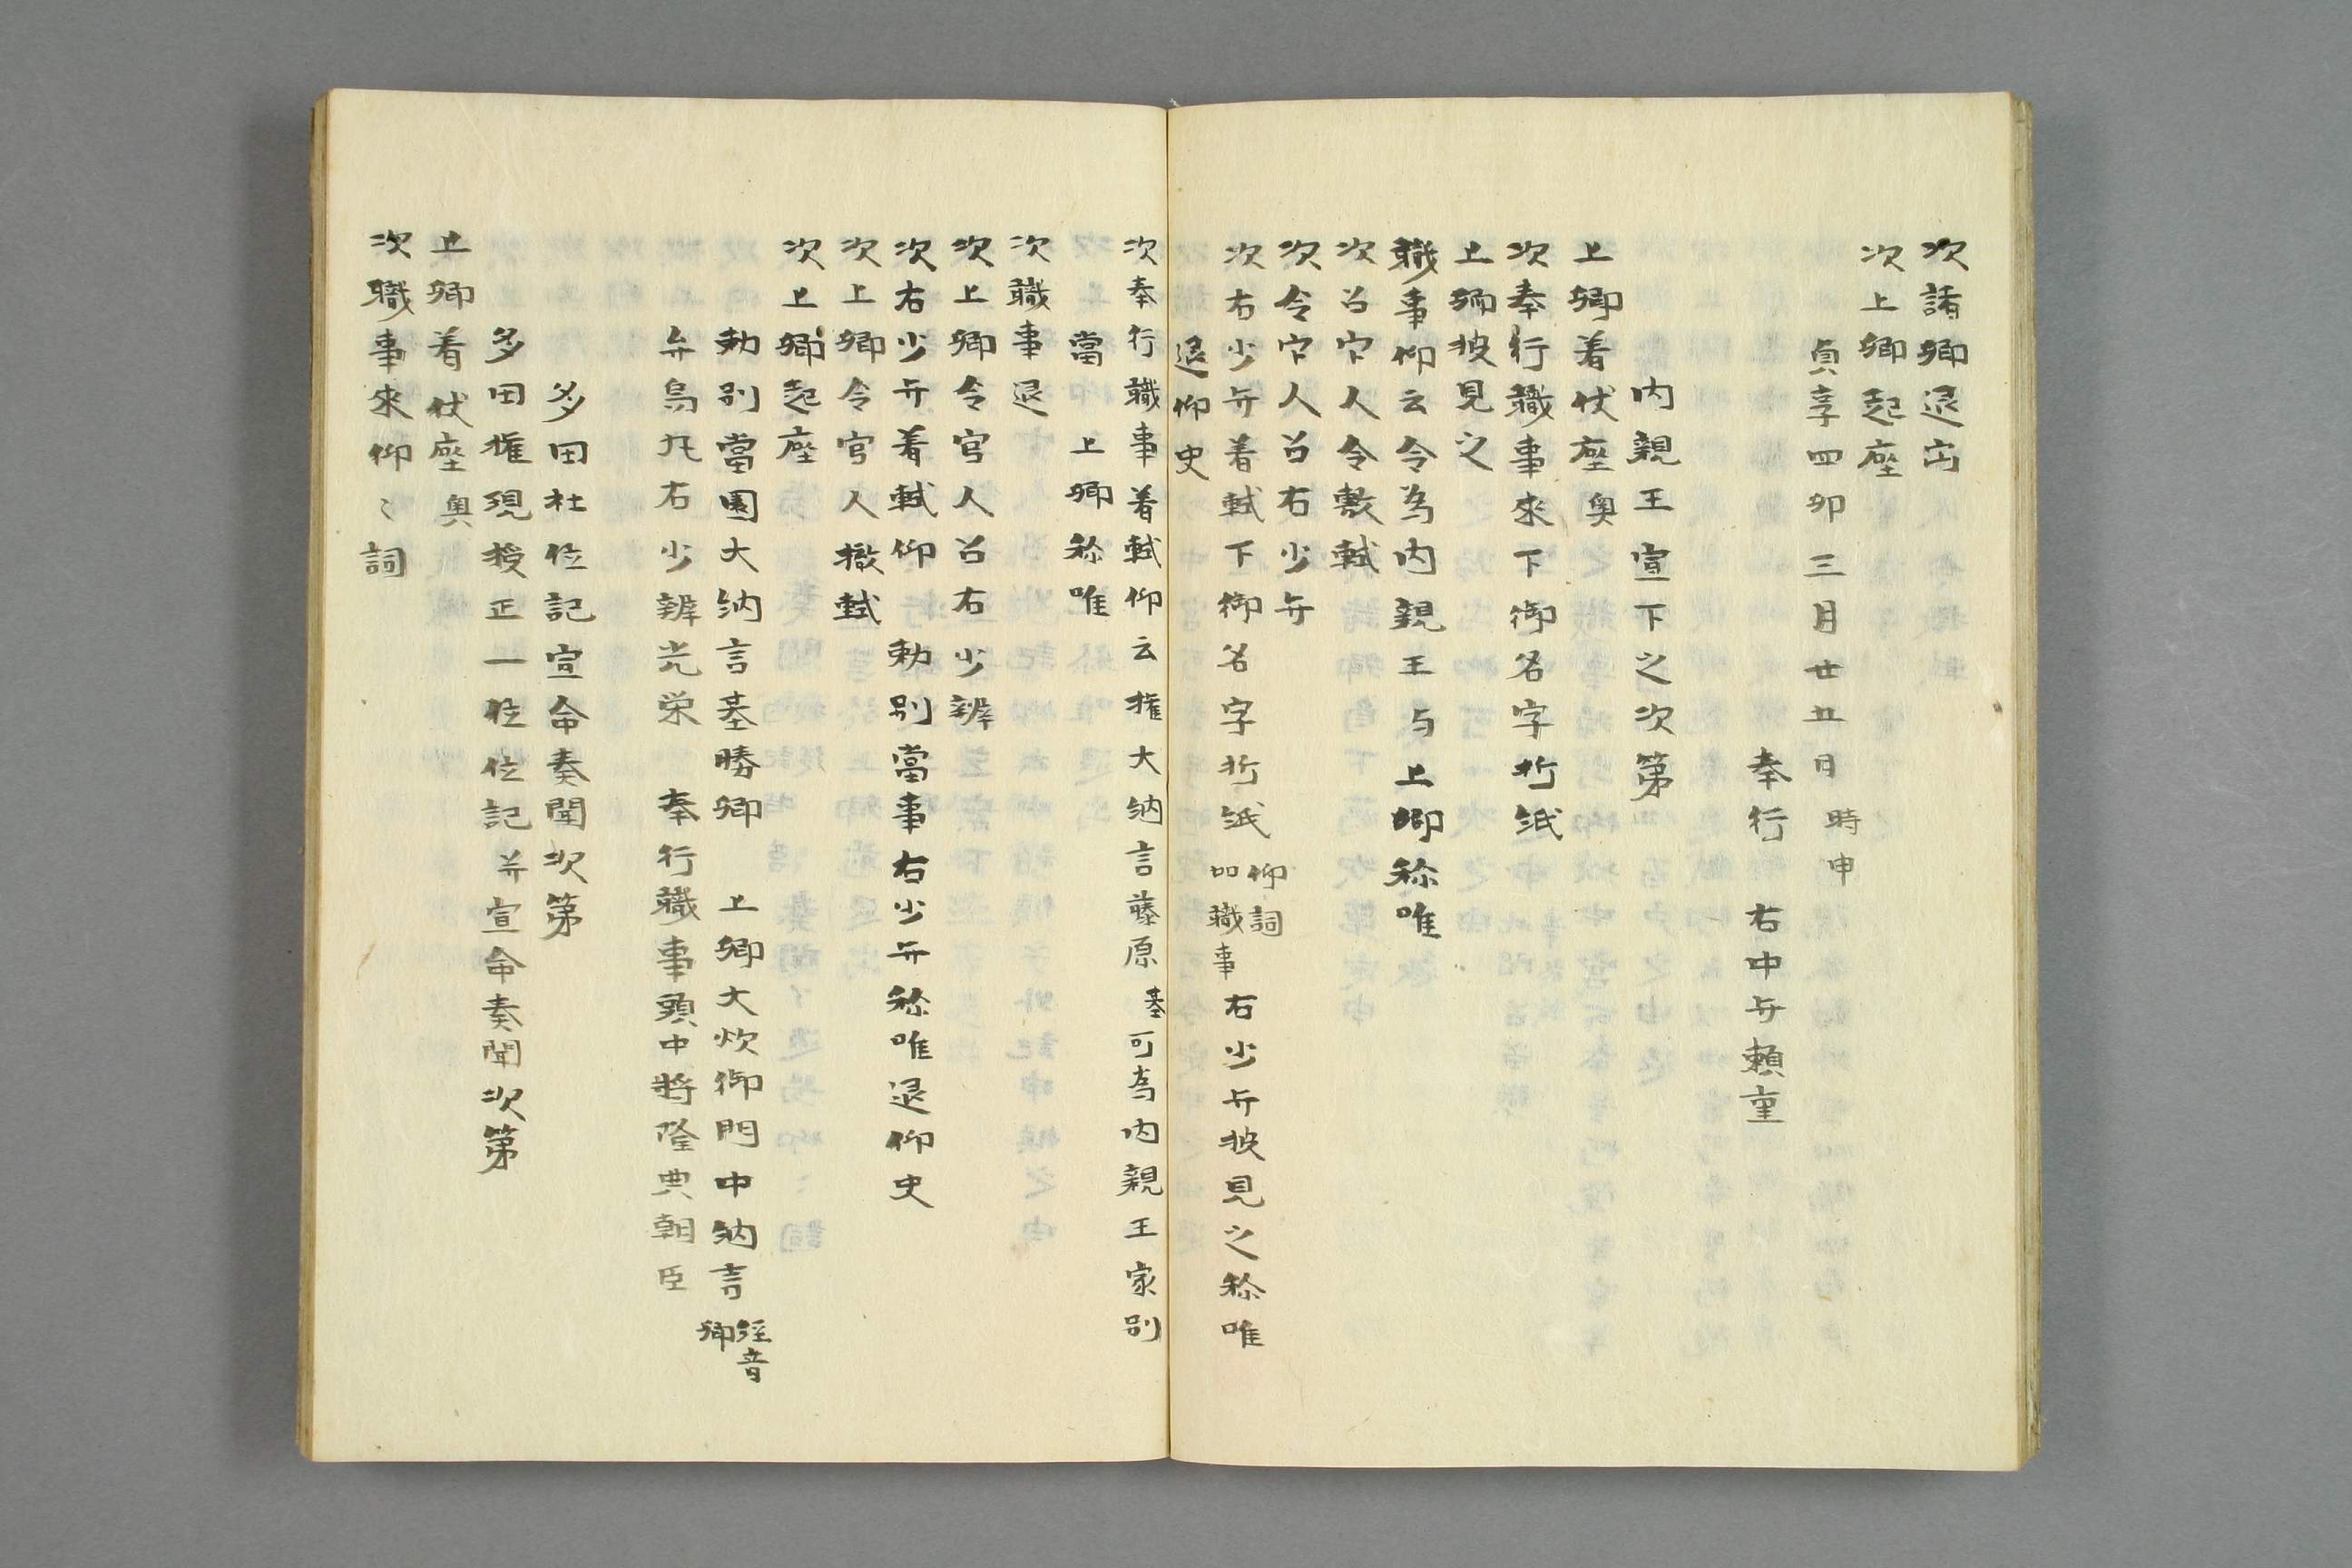 次諸卿退出
次上卿起座
貞享四卯三月廿五日 時申
奉行 右中弁頼重
内親王宣下之次第
上卿着伏座奥
次奉行職事來下御名字折紙
上卿披見之
職事仰云令為内親王与上卿称唯
次召官人令敷軾
次令官人召右少弁
次右少弁着軾下御名字折紙 仰詞如職事 右少弁披見之称唯
退仰史
次奉行職事着軾仰云権大納言藤原基可為内親王家別
當 上卿称唯
次職事退
次上卿令官人召右少辨
次右少弁着軾仰 勅別當事右少弁称唯退仰史
次上卿令官人撤軾
次上卿起座
勅別當園大納言基勝卿 上卿大炊御門中納言 経音卿
弁烏丸右少辨光栄 奉行職事頭中将隆典朝臣
多田社位記宣命奏聞次第
多田権現授正一位位記并宣命奏聞次第
上卿着伏座奥
次職事來仰〻詞